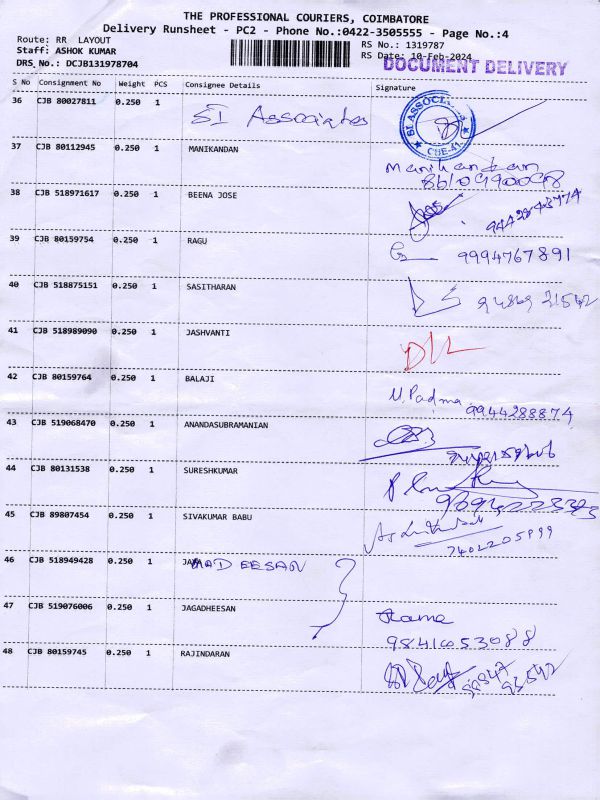 THE PROFESSIONAL COURIERS, COIMBATORE
Delivery Runsheet - PC2 - Phone No.:0422-3505555 - Page No.:4
Route: RR LAYOUT
Staff: ASHOK KUMAR
DRS No.: DCJB131978704
RS No.: 1319787
RS Date: 10-Feb-2024
DOCUMENT DELIVERY
S No Consignment No Weight PCS Consignee Details Signature
36 CJB 80027811 0.250 1 SI Associates
SI ASSOCIATES CBE-41
37 CJB 80112945 0.250 1 MANIKANDAN
Manikandan
38 CJB 518971617 0.250 1 BEENA JOSE
39 CJB 80159754 0.250 1 RAGU 9994767891
40 CJB 518875151 0.250 1 SASITHARAN
41 CJB 518989090 0.250 1 JASHVANTI
42 CJB 80159764 0.250 1 BALAJI
Padma 9944288874
43 CJB 519068470 0.250 1 ANANDASUBRAMANIAN
44 CJB 80131538 0.250 1 SURESHKUMAR
45 CJB 89807454 0.250 1 SIVAKUMAR BABU
7402205999
46 CJB 518949428 0.250 1
47 CJB 519076006 0.250 1 JAGADHEESAN
Rama
9841053088
48 CJB 80159745 0.250 1 RAJINDARAN